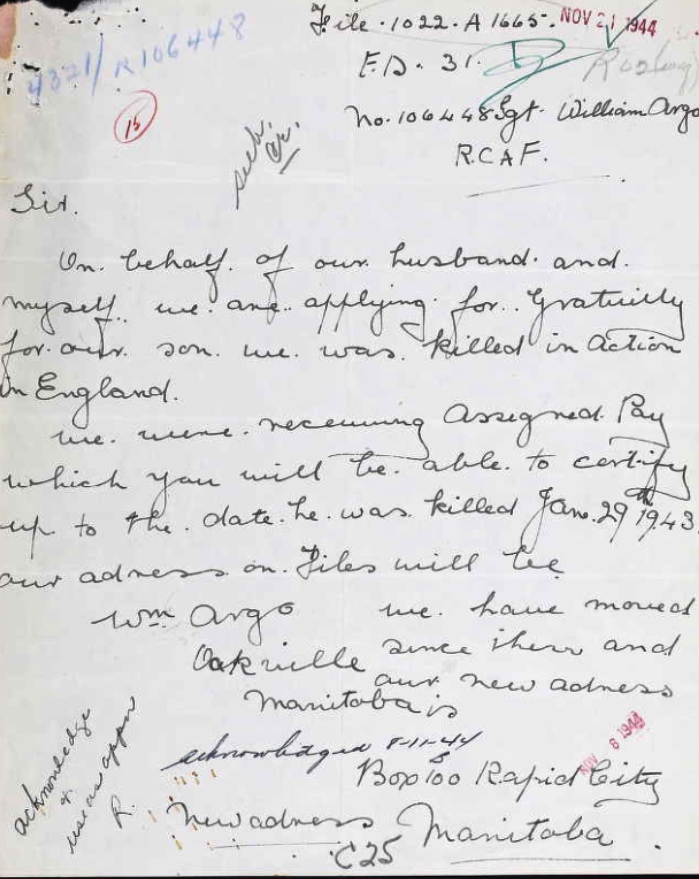 File. 1022. A 1665. NOV 21 1944
4321/R106448
F.D. 31.
15
No. 106448 Sgt. William Argo
R.C.A.F.
Sir.
On. behalf. of our. husband. and.
myself. we. are. applying. for. Gratuilly
for. our. son. we. was. killed in Action
in England.
we. were. receiving Assigned. Pay
which you will be. able. to certify
up to the. date. he. was. killed Jan. 29th 1943.
our adress on. Files will be
Wm Argo
Oakville
Manitoba
we. have moved
since then and
our new adress
is
acknowledged 8-11-44
NOV 8 1944
Box 100 Rapid City
Manitoba.
New adress
C25
acknowledge
&
use as appn
R.